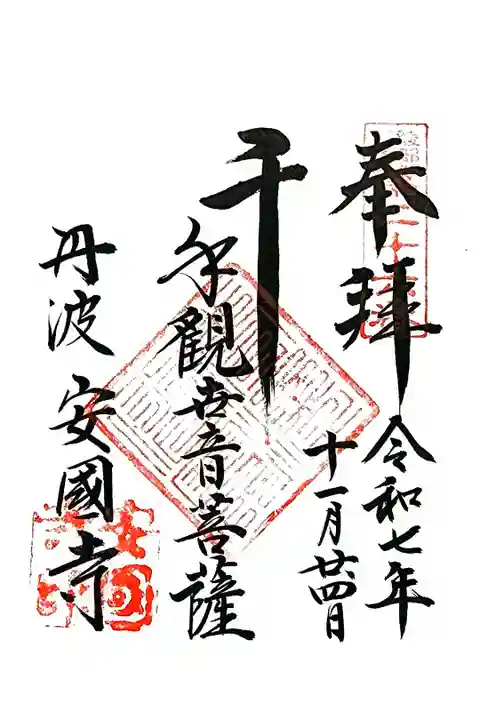 奉拝
令和七年
十一月廿四日
千手観世音菩薩
丹波 安國寺